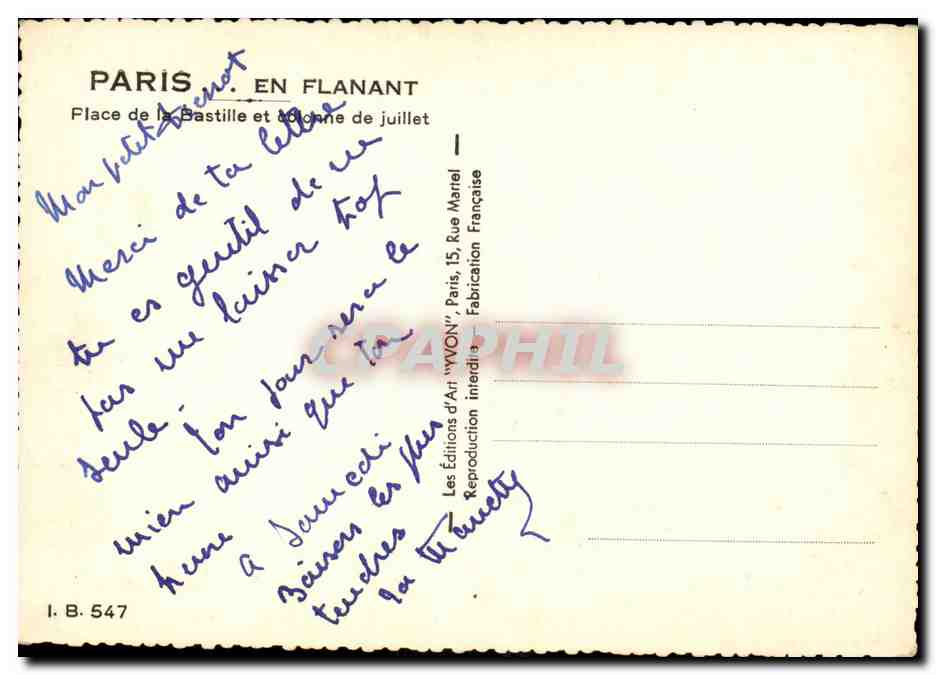 PARIS ... EN FLANANT
Place de la Bastille et colonne de juillet
Mon petit
Merci de ta lettre
tu es gentil de ne
pas me laisser trop
seule.
Ton jour sera le
mien ainsi que ton
heure
a Samedi
Baisers les plus
tendres
ta
Les Éditions d'Art "YVON", Paris, 15, Rue Martel
Reproduction interdite — Fabrication Française
CPAPHIL
I. B. 547